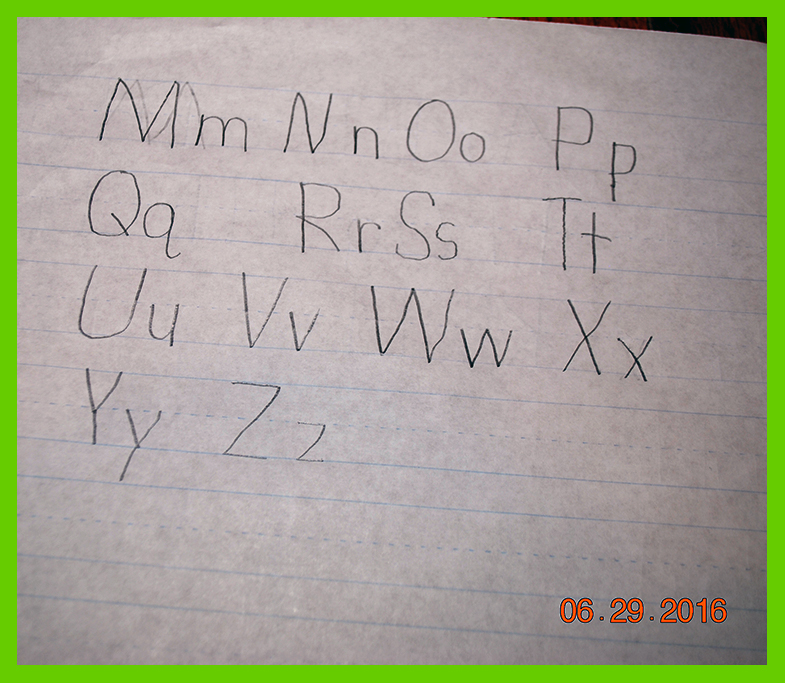 Mm Nn Oo Pp
Qq Rr Ss Tt
Uu Vv Ww Xx
Yy Zz
06.29.2016